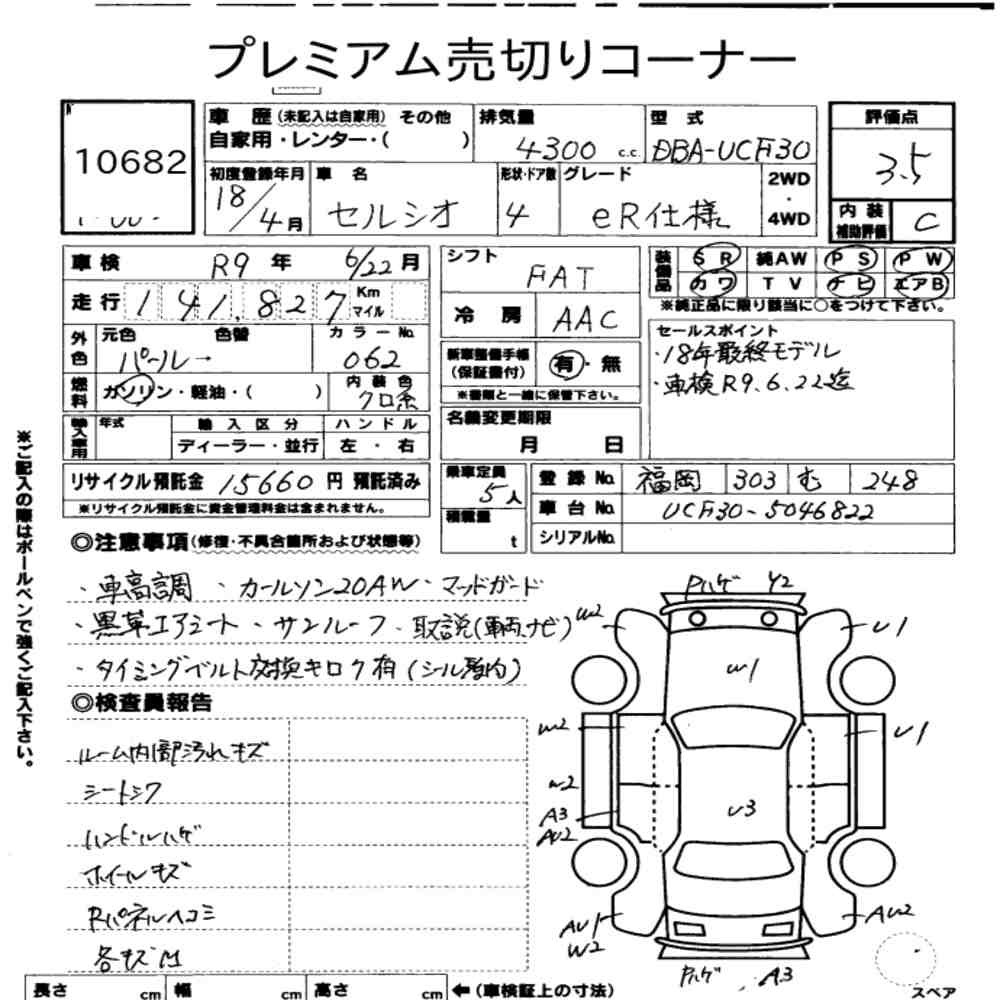 プレミアム売切りコーナー
10682
車歴(未記入は自家用) その他
自家用・レンター・( )
排気量
4300 c.c.
型式
DBA-UCF30
評価点
3.5
内装補助評価 C
初度登録年月
18/4月
車名
セルシオ
形状・ドア数
4
グレード
eR仕様
2WD
・
4WD
車検 R9年 6/22月
走行 141,827 Km マイル
外色
元色 色替
パール→
カラーNo.
062
燃料 ガソリン・軽油・( )
内装色
クロ系
輸入車用
年式
輸入区分
ディーラー・並行
ハンドル
左・右
リサイクル預託金 15660円 預託済み
※リサイクル預託金に資金管理料金は含まれません。
シフト
FAT
冷房 AAC
新車整備手帳(保証書付) 有・無
※書類と一緒に保管下さい。
名義変更期限
月 日
装備品
SR 純AW PS PW
カワ TV ナビ エアB
※純正品に限り該当に○をつけて下さい。
セールスポイント
・18年最終モデル
・車検R9.6.22迄
乗車定員
5人
積載量
t
登録No. 福岡 303 む 248
車台No. UCF30-5046822
シリアルNo.
※ご記入の際はボールペンで強くご記入下さい。
◎注意事項(修復・不具合箇所および状態等)
・車高調 ・カールソン20AW・マッドガード
・黒革エアシート・サンルーフ・取説(車両、ナビ)
・タイミングベルト交換キロク有(シール有)
◎検査員報告
ルーム内部汚れキズ
シートシワ
ハンドルハゲ
ホイールキズ
Rパネルヘコミ
各キズ
Pハゲ Y2
W2
U1
W1
W2
U1
W2
A3
AU2
U3
AU1
W2
AU2
Pハゲ A3
スペア
長さ cm 幅 cm 高さ cm ←(車検証上の寸法)